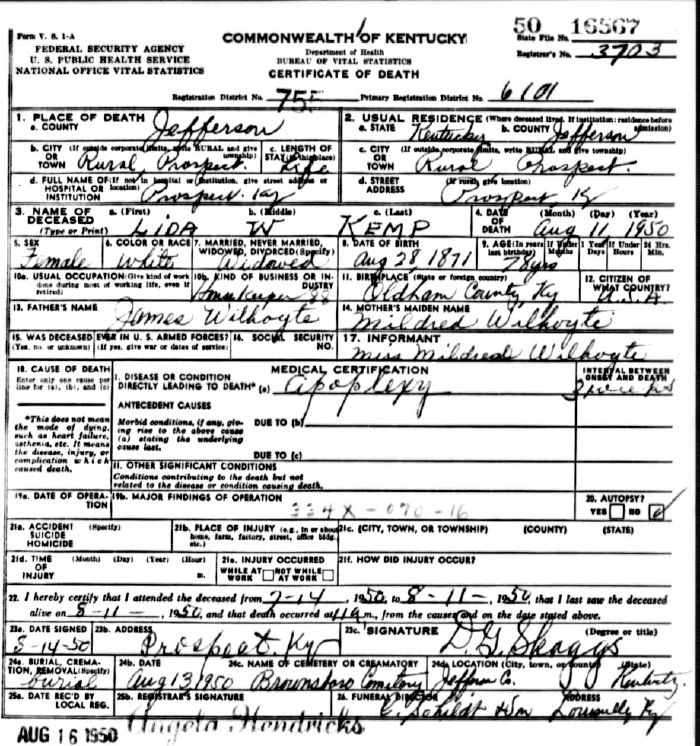 50 16567
Form V. S. 1-A
COMMONWEALTH OF KENTUCKY
State File No.
FEDERAL SECURITY AGENCY
Department of Health
Registrar's No. 3703
U. S. PUBLIC HEALTH SERVICE
BUREAU OF VITAL STATISTICS
NATIONAL OFFICE VITAL STATISTICS
CERTIFICATE OF DEATH
Registration District No. 755 Primary Registration District No. 6101
1. PLACE OF DEATH
a. COUNTY Jefferson
2. USUAL RESIDENCE (Where deceased lived. If institution: residence before admission)
a. STATE Kentucky b. COUNTY Jefferson
b. CITY (If outside corporate limits, write RURAL and give township)
OR TOWN Rural Prospect
c. LENGTH OF STAY (in this place) Life
c. CITY (If outside corporate limits, write RURAL and give township)
OR TOWN Rural Prospect
d. FULL NAME OF (If not in hospital or institution, give street address or location)
HOSPITAL OR INSTITUTION Prospect Ky
d. STREET ADDRESS (If rural, give location)
Prospect Ky
3. NAME OF DECEASED (Type or Print)
a. (First) LIDA b. (Middle) W c. (Last) KEMP
4. DATE OF DEATH (Month) (Day) (Year) Aug 11 1950
5. SEX Female
6. COLOR OR RACE White
7. MARRIED, NEVER MARRIED, WIDOWED, DIVORCED (Specify) Widowed
8. DATE OF BIRTH Aug 28 1871
9. AGE (In years last birthday) 78yrs If Under 1 Year Months Days If Under 24 Hrs. Hours Min.
10a. USUAL OCCUPATION (Give kind of work done during most of working life, even if retired)
10b. KIND OF BUSINESS OR INDUSTRY
Housekeeper
11. BIRTHPLACE (State or foreign country) Oldham County, Ky
12. CITIZEN OF WHAT COUNTRY? U.S.A
13. FATHER'S NAME James Wilhoyte
14. MOTHER'S MAIDEN NAME Mildred Wilhoyte
15. WAS DECEASED EVER IN U. S. ARMED FORCES?
(Yes, no, or unknown) (If yes, give war or dates of service)
16. SOCIAL SECURITY NO.
17. INFORMANT Miss Mildred Wilhoyte
18. CAUSE OF DEATH
Enter only one cause per line for (a), (b), and (c)
MEDICAL CERTIFICATION
INTERVAL BETWEEN ONSET AND DEATH
I. DISEASE OR CONDITION DIRECTLY LEADING TO DEATH* (a) Apoplexy
*This does not mean the mode of dying, such as heart failure, asthenia, etc. It means the disease, injury, or complication which caused death.
ANTECEDENT CAUSES
Morbid conditions, if any, giving rise to the above cause (a) stating the underlying cause last.
DUE TO (b)
DUE TO (c)
II. OTHER SIGNIFICANT CONDITIONS
Conditions contributing to the death but not related to the disease or condition causing death.
19a. DATE OF OPERATION
19b. MAJOR FINDINGS OF OPERATION
334X-070-16
20. AUTOPSY?
YES NO
21a. ACCIDENT SUICIDE HOMICIDE (Specify)
21b. PLACE OF INJURY (e.g., in or about home, farm, factory, street, office bldg. etc.)
21c. (CITY, TOWN, OR TOWNSHIP) (COUNTY) (STATE)
21d. TIME OF INJURY (Month) (Day) (Year) (Hour) m.
21e. INJURY OCCURRED
WHILE AT WORK NOT WHILE AT WORK
21f. HOW DID INJURY OCCUR?
22. I hereby certify that I attended the deceased from 7-14, 1950, to 8-11-, 1950, that I last saw the deceased
alive on 8-11-, 1950, and that death occurred at 11 a m., from the causes and on the date stated above.
23a. DATE SIGNED 8-14-50
23b. ADDRESS Prospect, Ky
23c. SIGNATURE D. G. Skaggs (Degree or title)
24a. BURIAL, CREMATION, REMOVAL (Specify) Burial
24b. DATE Aug 13 1950
24c. NAME OF CEMETERY OR CREAMATORY Brownsboro Cemetery
24d. LOCATION (City, town, or county) (State) Jefferson Co. Kentucky
25a. DATE REC'D BY LOCAL REG. AUG 16 1950
25b. REGISTRAR'S SIGNATURE Angela Hendricks
26. FUNERAL DIRECTOR C. Schildt & Son
ADDRESS Louisville Ky